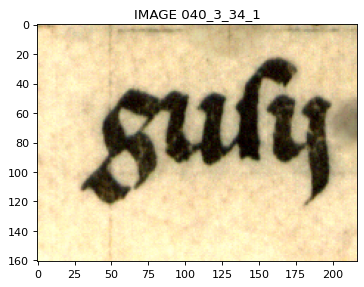 IMAGE 040_3_34_1
0
20
40
60
80
100
120
140
160
guſy
0 25 50 75 100 125 150 175 200